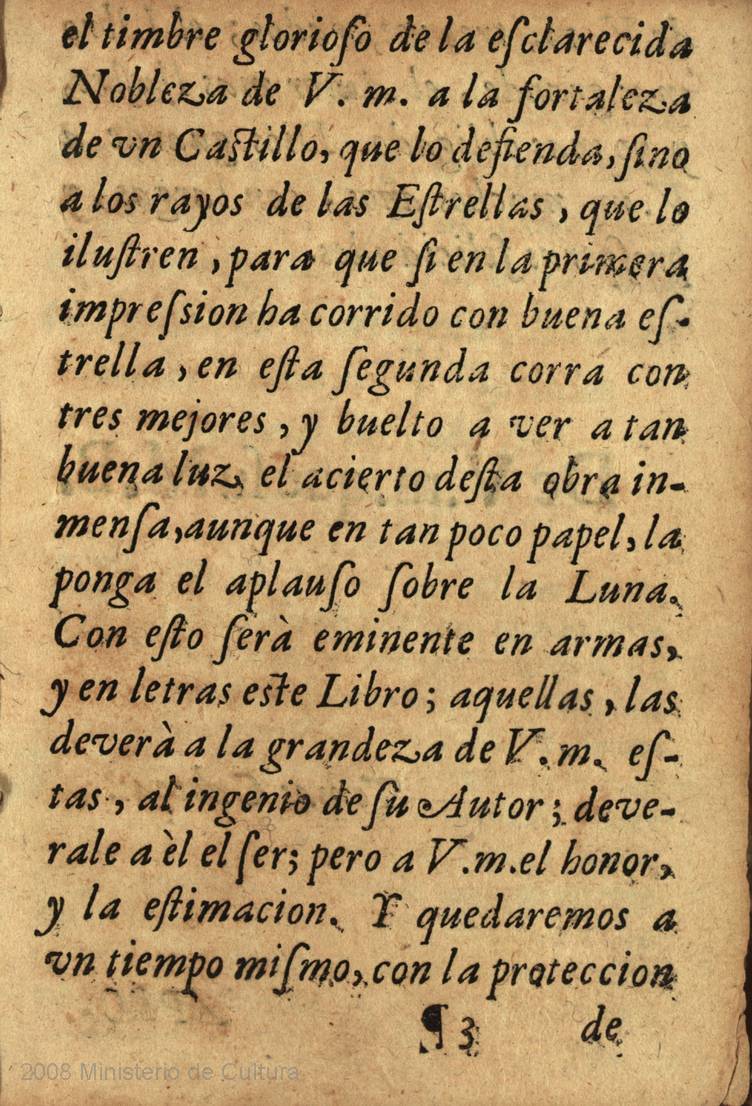 el timbre glorioſo de la eſclarecida
Nobleza de V. m. a la fortaleza
de vn Caſtillo, que lo defienda, ſino
a los rayos de las Eſtrellas, que lo
iluſtren, para que ſi en la primera
impreſsion ha corrido con buena eſ-
trella, en eſta ſegunda corra con
tres mejores, y buelto a ver a tan
buena luz, el acierto deſta obra in-
menſa, aunque en tan poco papel, la
ponga el aplauſo ſobre la Luna.
Con eſto ſerà eminente en armas,
y en letras eſte Libro; aquellas, las
deverà a la grandeza de V. m. eſ-
tas, al ingenio de ſu Autor; deve-
rale a èl el ſer; pero a V.m. el honor,
y la eſtimacion. Y quedaremos a
vn tiempo miſmo, con la proteccion
¶3 de
2008 Ministerio de Cultura